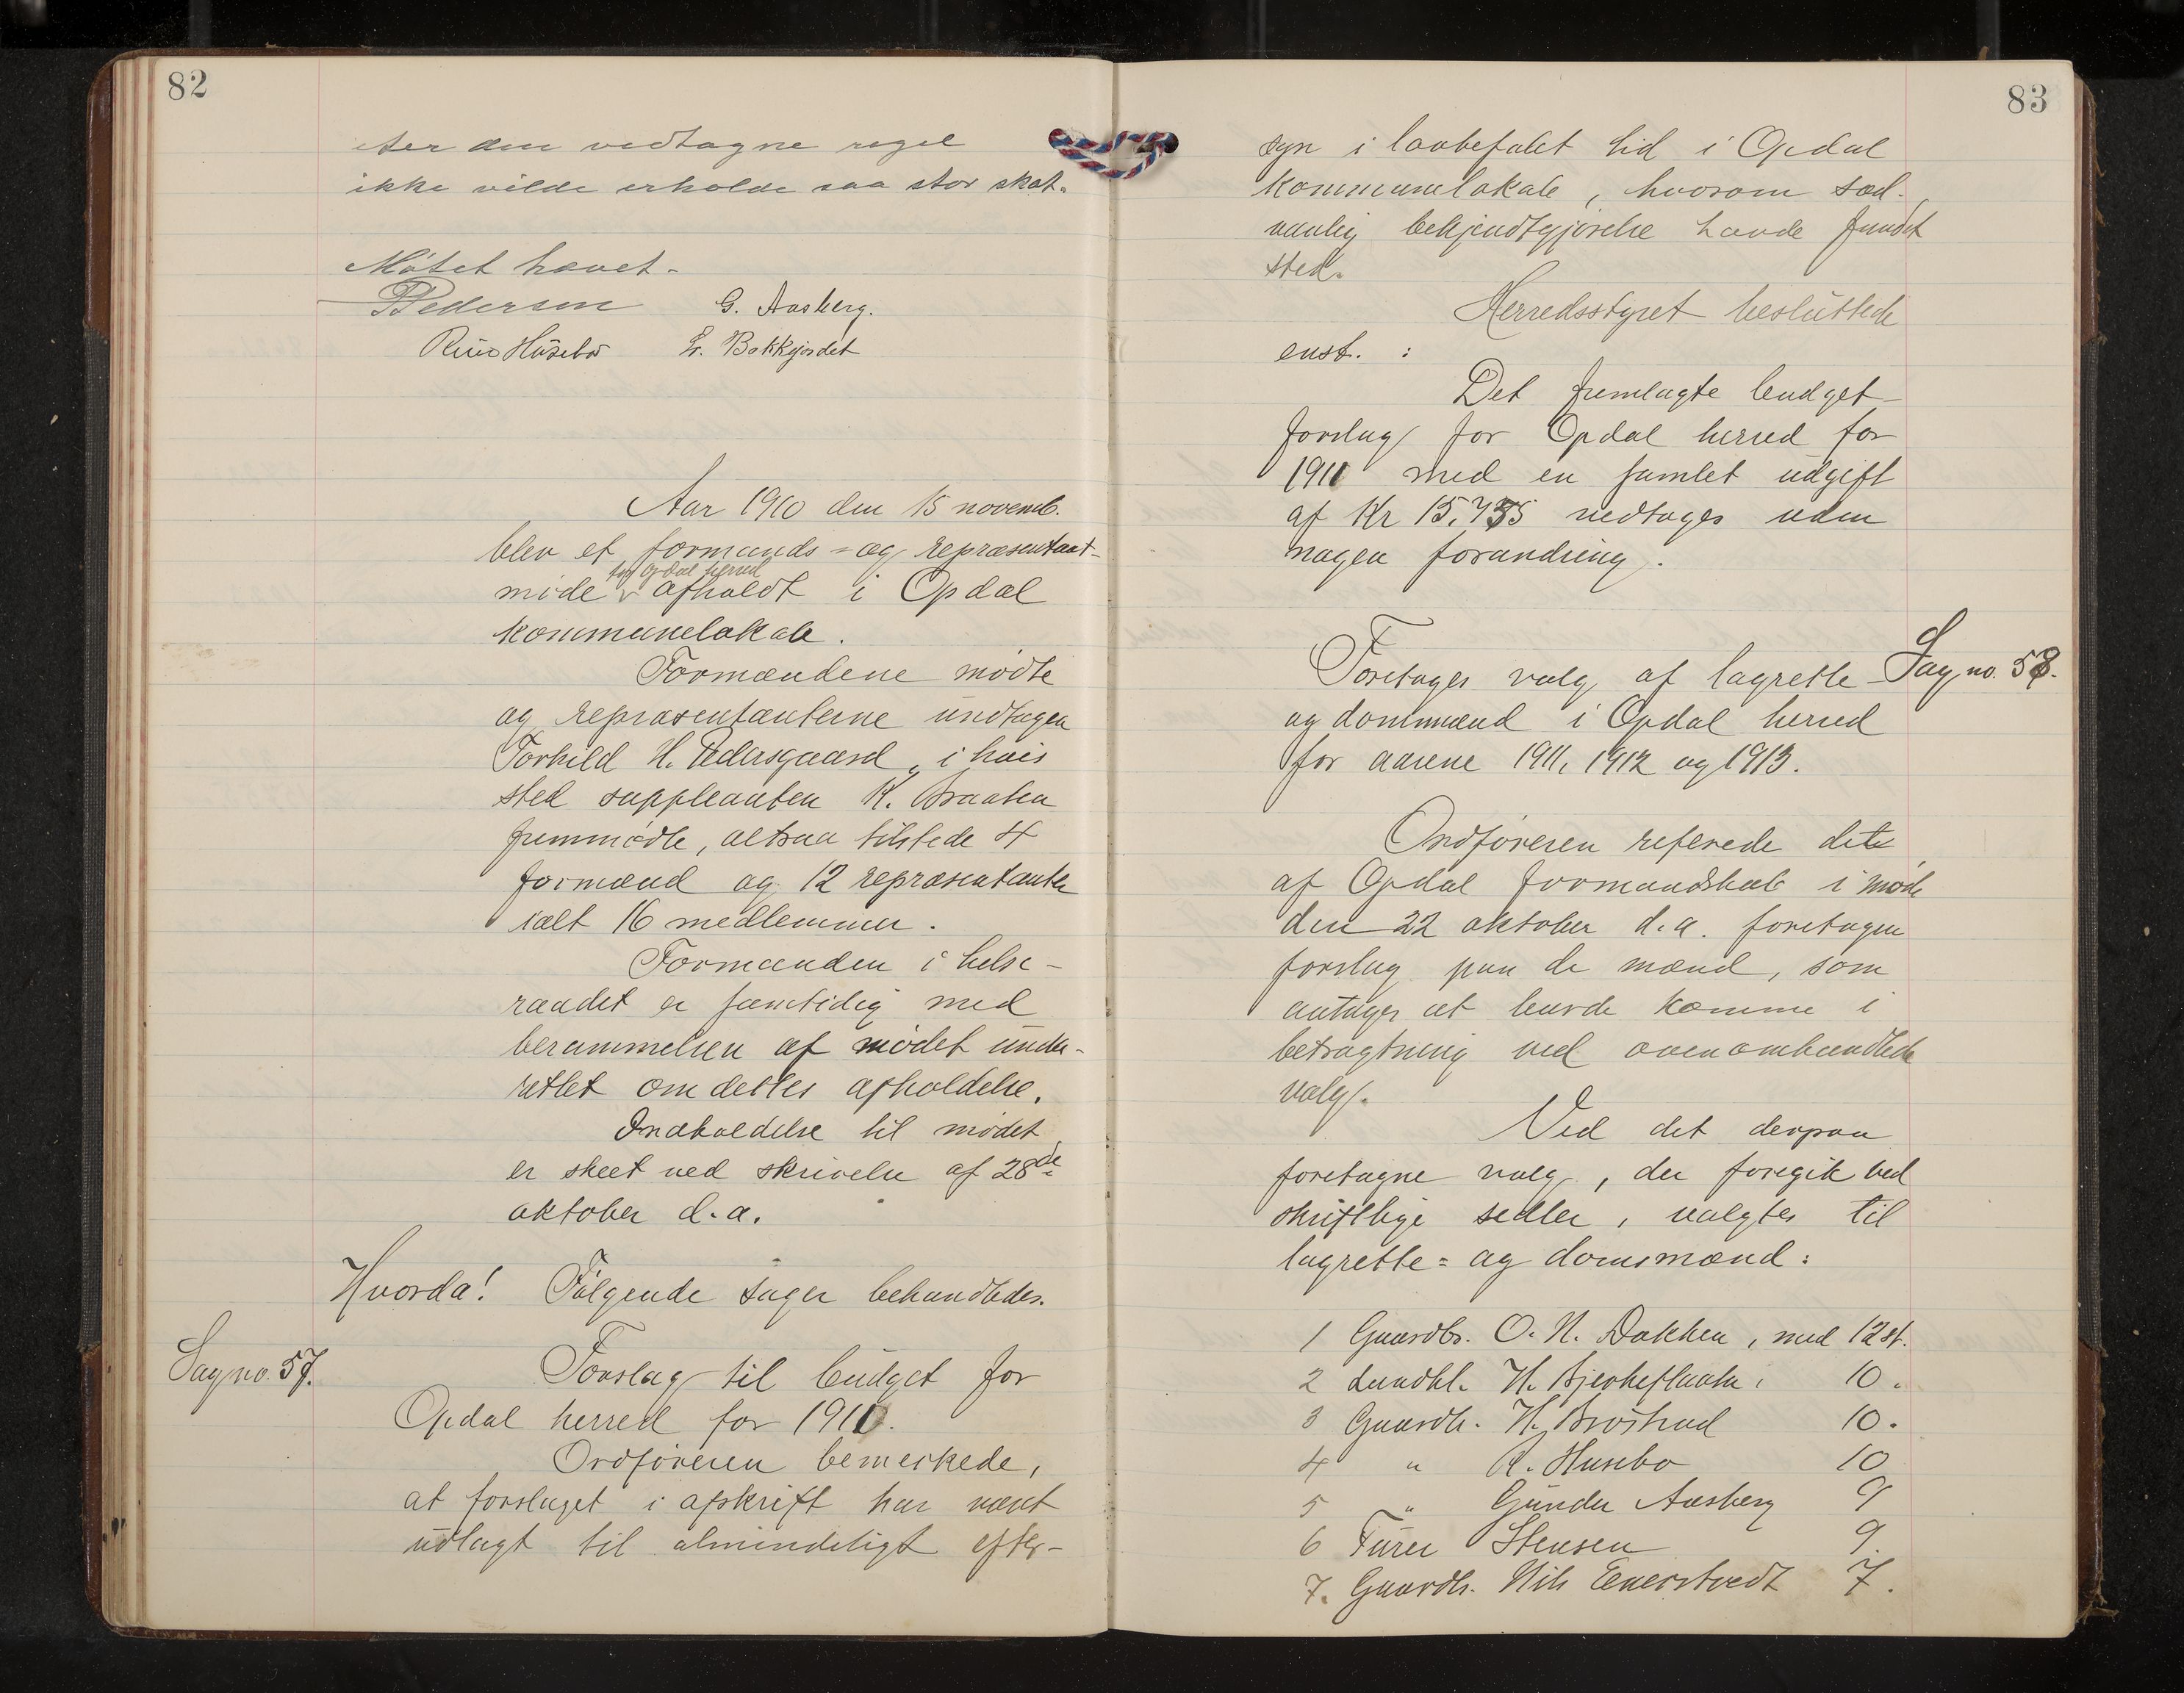 82
efter den vedtagne regel
ikke vilde erholde saa stor skat.
Mötet hævet.
Pedersen G. Aasberg.
Husebö E. Bakkejordet
Aar 1910 den 15 novemb.
blev et formands- og repræsentant-
for Opdal herred
möde afholdt i Opdal
kommunelokale.
Formændene mödte
og repræsentanterne undtagen
Torkild H. Pedersgaard, i hvis
sted suppleanten K. Braaten
fremmödte, altsaa tilstede 4
formænd og 12 repræsentanter
ialt 16 medlemmer.
Formanden i helse-
raadet er samtidig med
berammelsen af mödet under-
rettet om dettes afholdelse.
Indkaldelse til mödet
er skeet ved skrivelse af 28de
oktober d.a.
Hvorda! Fölgende sager behandledes.
Sag no. 57.
Forslag til budget for
Opdal herred for 1911.
Ordföreren bemerkede,
at forslaget i afskrift har været
udlagt til almindeligt efter-
83
syn i lovbefalet tid i Opdal
kommunelokale, hvorom sæd-
vanlig bekjendtgjörelse havde fundet
sted.
Herredsstyret besluttede
enst. :
Det fremlagte budget-
forslag for Opdal herred for
1911 med en samlet udgift
af Kr vedtages uden
nogen forandring.
Foretages valg af lagrette- Sag no. 58.
og domsmænd i Opdal herred
for aarene 1911, 1912 og 1913.
Ordföreren referede det
af Opdal formandskab i möde
den 22 oktober d.a. foretagne
forslag paa de mænd, som
antages at burde komme i
betragtning ved ovenomhandlede
valg.
Ved det derpaa
foretagne valg, der foregik ved
skriftlige sedler, valgtes til
lagrette= og domsmænd:
1 Gaardbr. O. N. Dokken, med 12 st.
2 Landhl. H. Bjerkeflaata, 10.
3 Gaardb. H. Bröstrud 10.
4 " R. Husebo 10
5 " Gunder Aasberg 9
6 Furer Stensen 9.
7. Gaardb. Nils Enerstvedt 7.